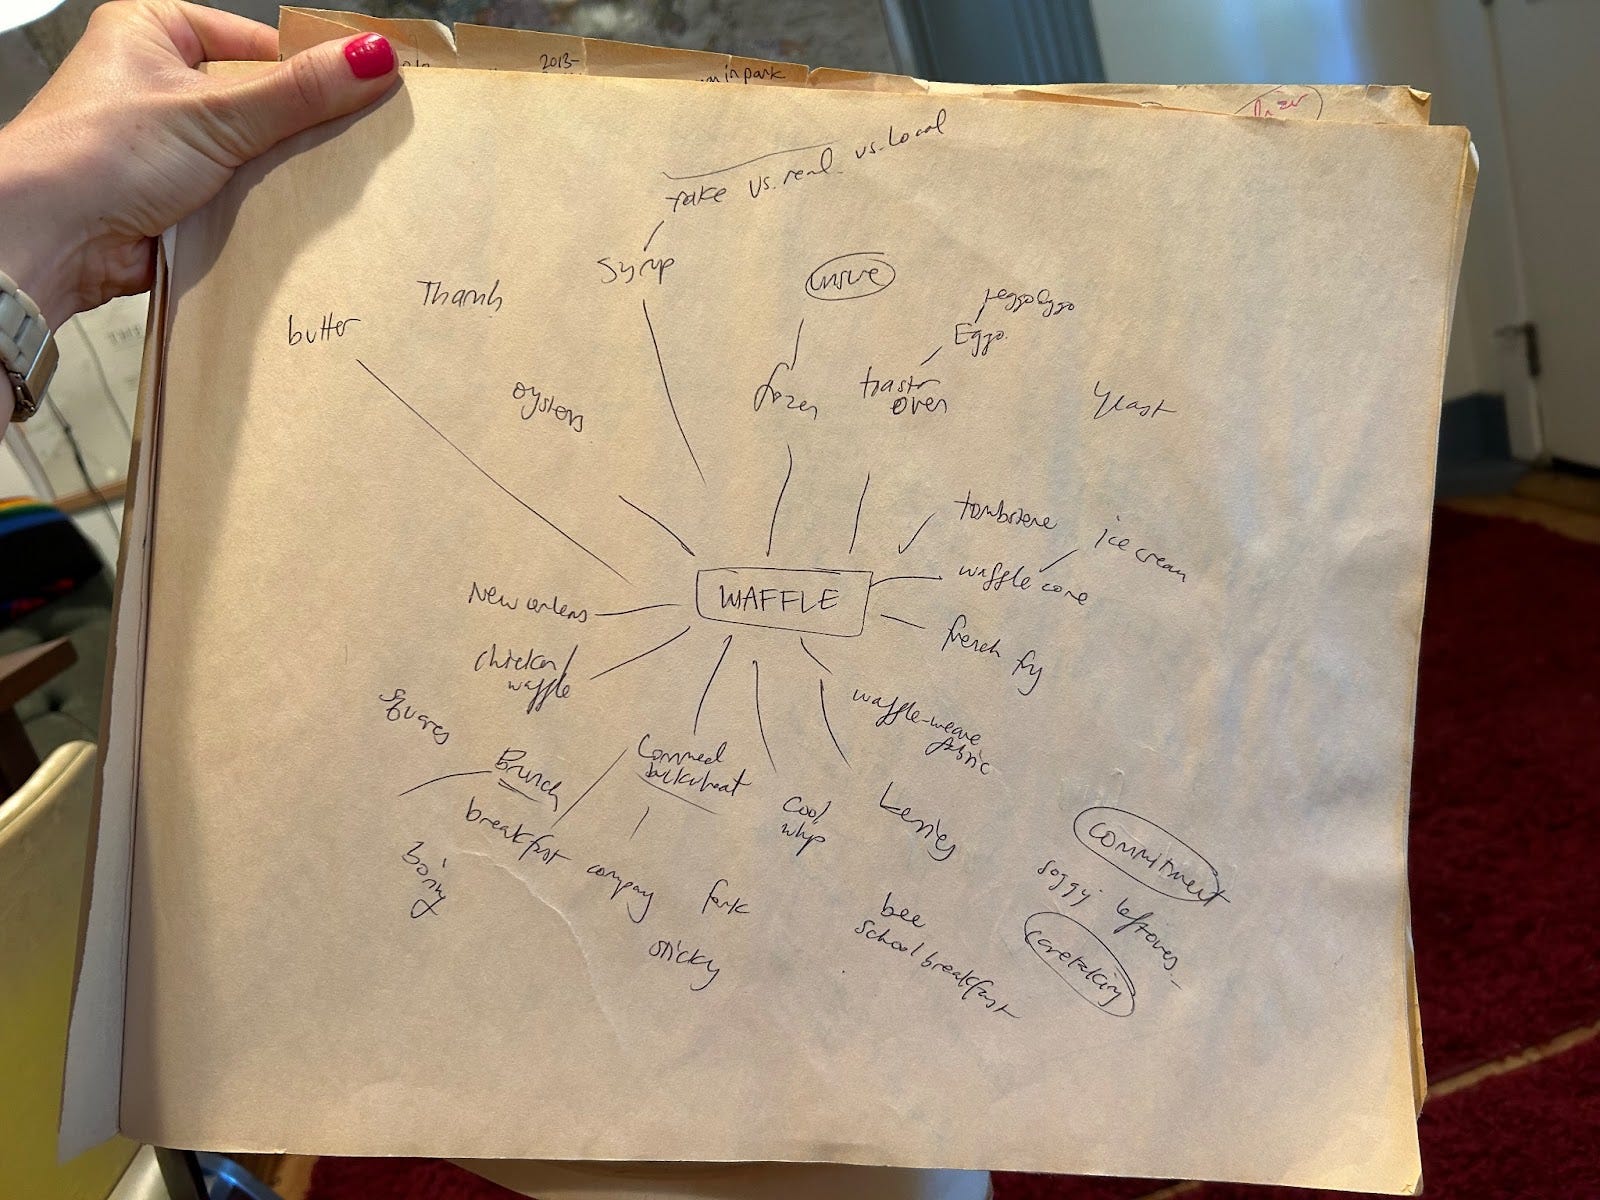 2013-
in park
fake vs. real vs. local
syrup
Thanh
butter
leggo Eggo
Eggo.
oysters
frozen
toaster
oven
yeast
tombstone
ice cream
waffle cone
WAFFLE
New orleans
french fry
chicken/
waffle
waffle-weave
fabric
squares
Brunch
cornmeal
buckwheat
cool
whip
berries
breakfast
boring
company
fork
sticky
bee
school breakfast
commitment
soggy leftovers
caretaking